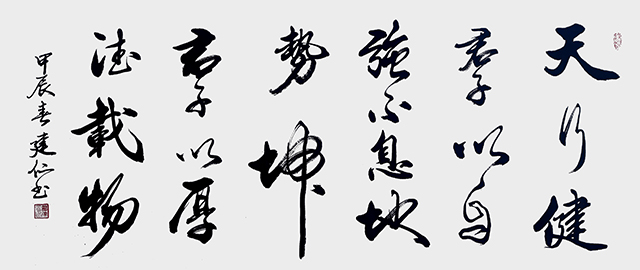 天行健
君子以自
強不息地
勢坤
君子以厚
德載物
甲辰春建仁书